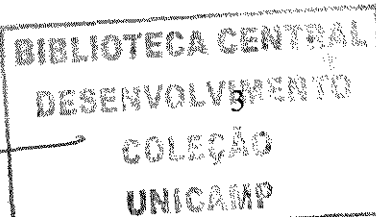 BIBLIOTECA CENTRAL
DESENVOLVIMENTO
3
COLEÇÃO
UNICAMP